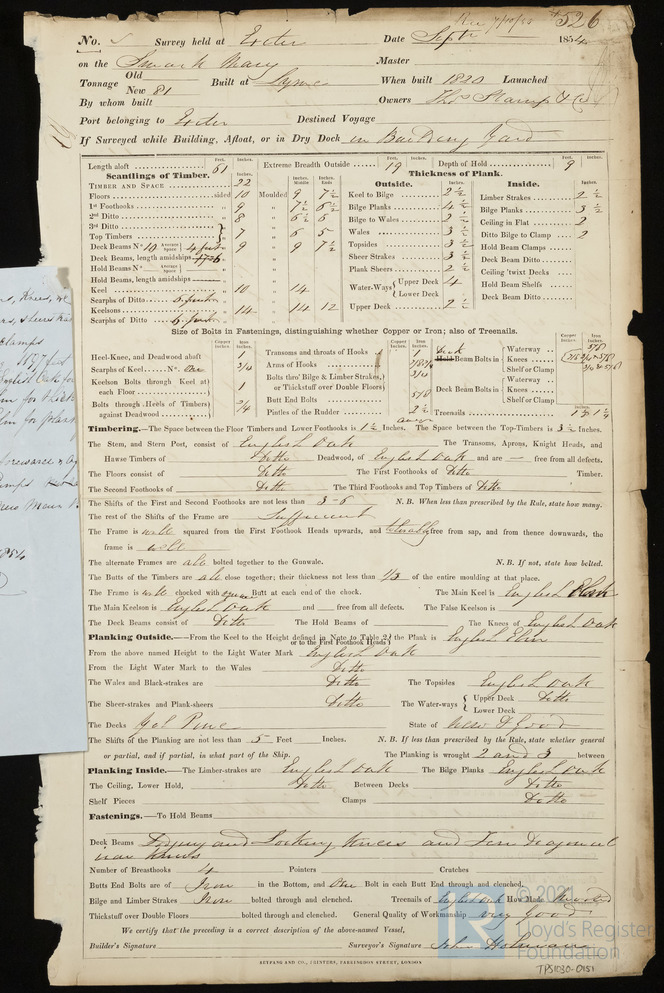 Rec 7/10/54 526
No. Survey held at Exeter Date Septr 1854
on the Smack Mary Master
Tonnage Old New 81 Built at Lyme When built 1820 Launched
By whom built Owners Thos Stamp & Co
Port belonging to Exeter Destined Voyage
If Surveyed while Building, Afloat, or in Dry Dock in Building Yard
Length aloft 61 Extreme Breadth Outside 19 Depth of Hold 9
Scantlings of Timber. Thickness of Plank.
Outside. Inside.
TIMBER AND SPACE 22
Floors sided 10 Moulded 9 7½ Keel to Bilge 2½ Limber Strakes 2½
1st Foothooks 9 7½ 6½ Bilge Planks 4½ Bilge Planks 3½
2nd Ditto 8 6½ 6 Bilge to Wales 2½ Ceiling in Flat 2
3rd Ditto Wales 3½ Ditto Bilge to Clamp 2
Top Timbers 7 6 5 Topsides 3½ Hold Beam Clamps
Deck Beams No. 10 Average Space 4 feet 9 9 7½ Sheer Strakes 3½ Deck Beam Ditto
Deck Beams, length amidships Plank Sheers 2½ Ceiling 'twixt Decks
Hold Beams No. Average Space Water-Ways Upper Deck 4 Lower Deck Hold Beam Shelfs
Hold Beams, length amidships Deck Beam Ditto
Keel 10 14 Upper Deck 2½
Scarphs of Ditto
Keelsons 14 14 12
Scarphs of Ditto
Size of Bolts in Fastenings, distinguishing whether Copper or Iron; also of Treenails.
Heel-Knee, and Deadwood abaft 1 Transoms and throats of Hooks 1 Deck Hold Beam Bolts in Waterway 5/8
Scarphs of Keel No. One 3/4 Arms of Hooks Knees
Keelson Bolts through Keel at each Floor 1 Bolts thro' Bilge & Limber Strakes, or Thickstuff over Double Floors 3/4 Shelf or Clamp
Butt End Bolts 5/8 Deck Beam Bolts in Waterway Knees Shelf or Clamp
Bolts through Heels of Timbers against Deadwood 3/4 Pintles of the Rudder 2½ Treenails
Timbering.—The Space between the Floor Timbers and Lower Foothooks is 1½ Inches. The Space between the Top-Timbers is 3½ Inches.
The Stem, and Stern Post, consist of English Oak The Transoms, Aprons, Knight Heads, and
Hawse Timbers of Ditto Deadwood, of English Oak and are — free from all defects.
The Floors consist of Ditto The First Foothooks of Ditto Timber.
The Second Foothooks of Ditto The Third Foothooks and Top Timbers of Ditto
The Shifts of the First and Second Foothooks are not less than 3-6 N.B. When less than prescribed by the Rule, state how many.
The rest of the Shifts of the Frame are Sufficient
The Frame is well squared from the First Foothook Heads upwards, and tolerably free from sap, and from thence downwards, the
frame is well
The alternate Frames are all bolted together to the Gunwale. N.B. If not, state how bolted.
The Butts of the Timbers are all close together; their thickness not less than 1/3 of the entire moulding at that place.
The Frame is well chocked with Butt at each end of the chock. The Main Keel is English
The Main Keelson is English Oak and — free from all defects. The False Keelson is
The Deck Beams consist of Ditto The Hold Beams of The Knees of English Oak
Planking Outside.—From the Keel to the Height defined in Note to Table 2, the Plank is English Elm
or to the First Foothook Heads
From the above named Height to the Light Water Mark English Oak
From the Light Water Mark to the Wales Ditto
The Wales and Black-strakes are Ditto The Topsides English Oak
The Sheer-strakes and Plank-sheers Ditto The Water-ways Upper Deck Ditto Lower Deck
The Decks Yel Pine State of New & Good
The Shifts of the Planking are not less than 5 Feet Inches. N.B. If less than prescribed by the Rule, state whether general
or partial, and if partial, in what part of the Ship. The Planking is wrought 2 and 3 between
Planking Inside.—The Limber-strakes are English Oak The Bilge Planks English Oak
The Ceiling, Lower Hold, Ditto Between Decks Ditto
Shelf Pieces Clamps Ditto
Fastenings.—To Hold Beams
Deck Beams Lodging and Locking Knees and Iron Diagonal
iron knees
Number of Breasthooks 4 Pointers Crutches
Butts End Bolts are of Iron in the Bottom, and One Bolt in each Butt End through and clenched.
Bilge and Limber Strakes Iron bolted through and clenched. Treenails of English Oak How Made
Thickstuff over Double Floors bolted through and clenched. General Quality of Workmanship very good
We certify that the preceding is a correct description of the above-named Vessel,
Builder's Signature Surveyor's Signature John Holman
SEYFANG AND CO., PRINTERS, FARRINGDON STREET, LONDON
© 2021
LR
Lloyd's Register
Foundation
TPS1030-0151